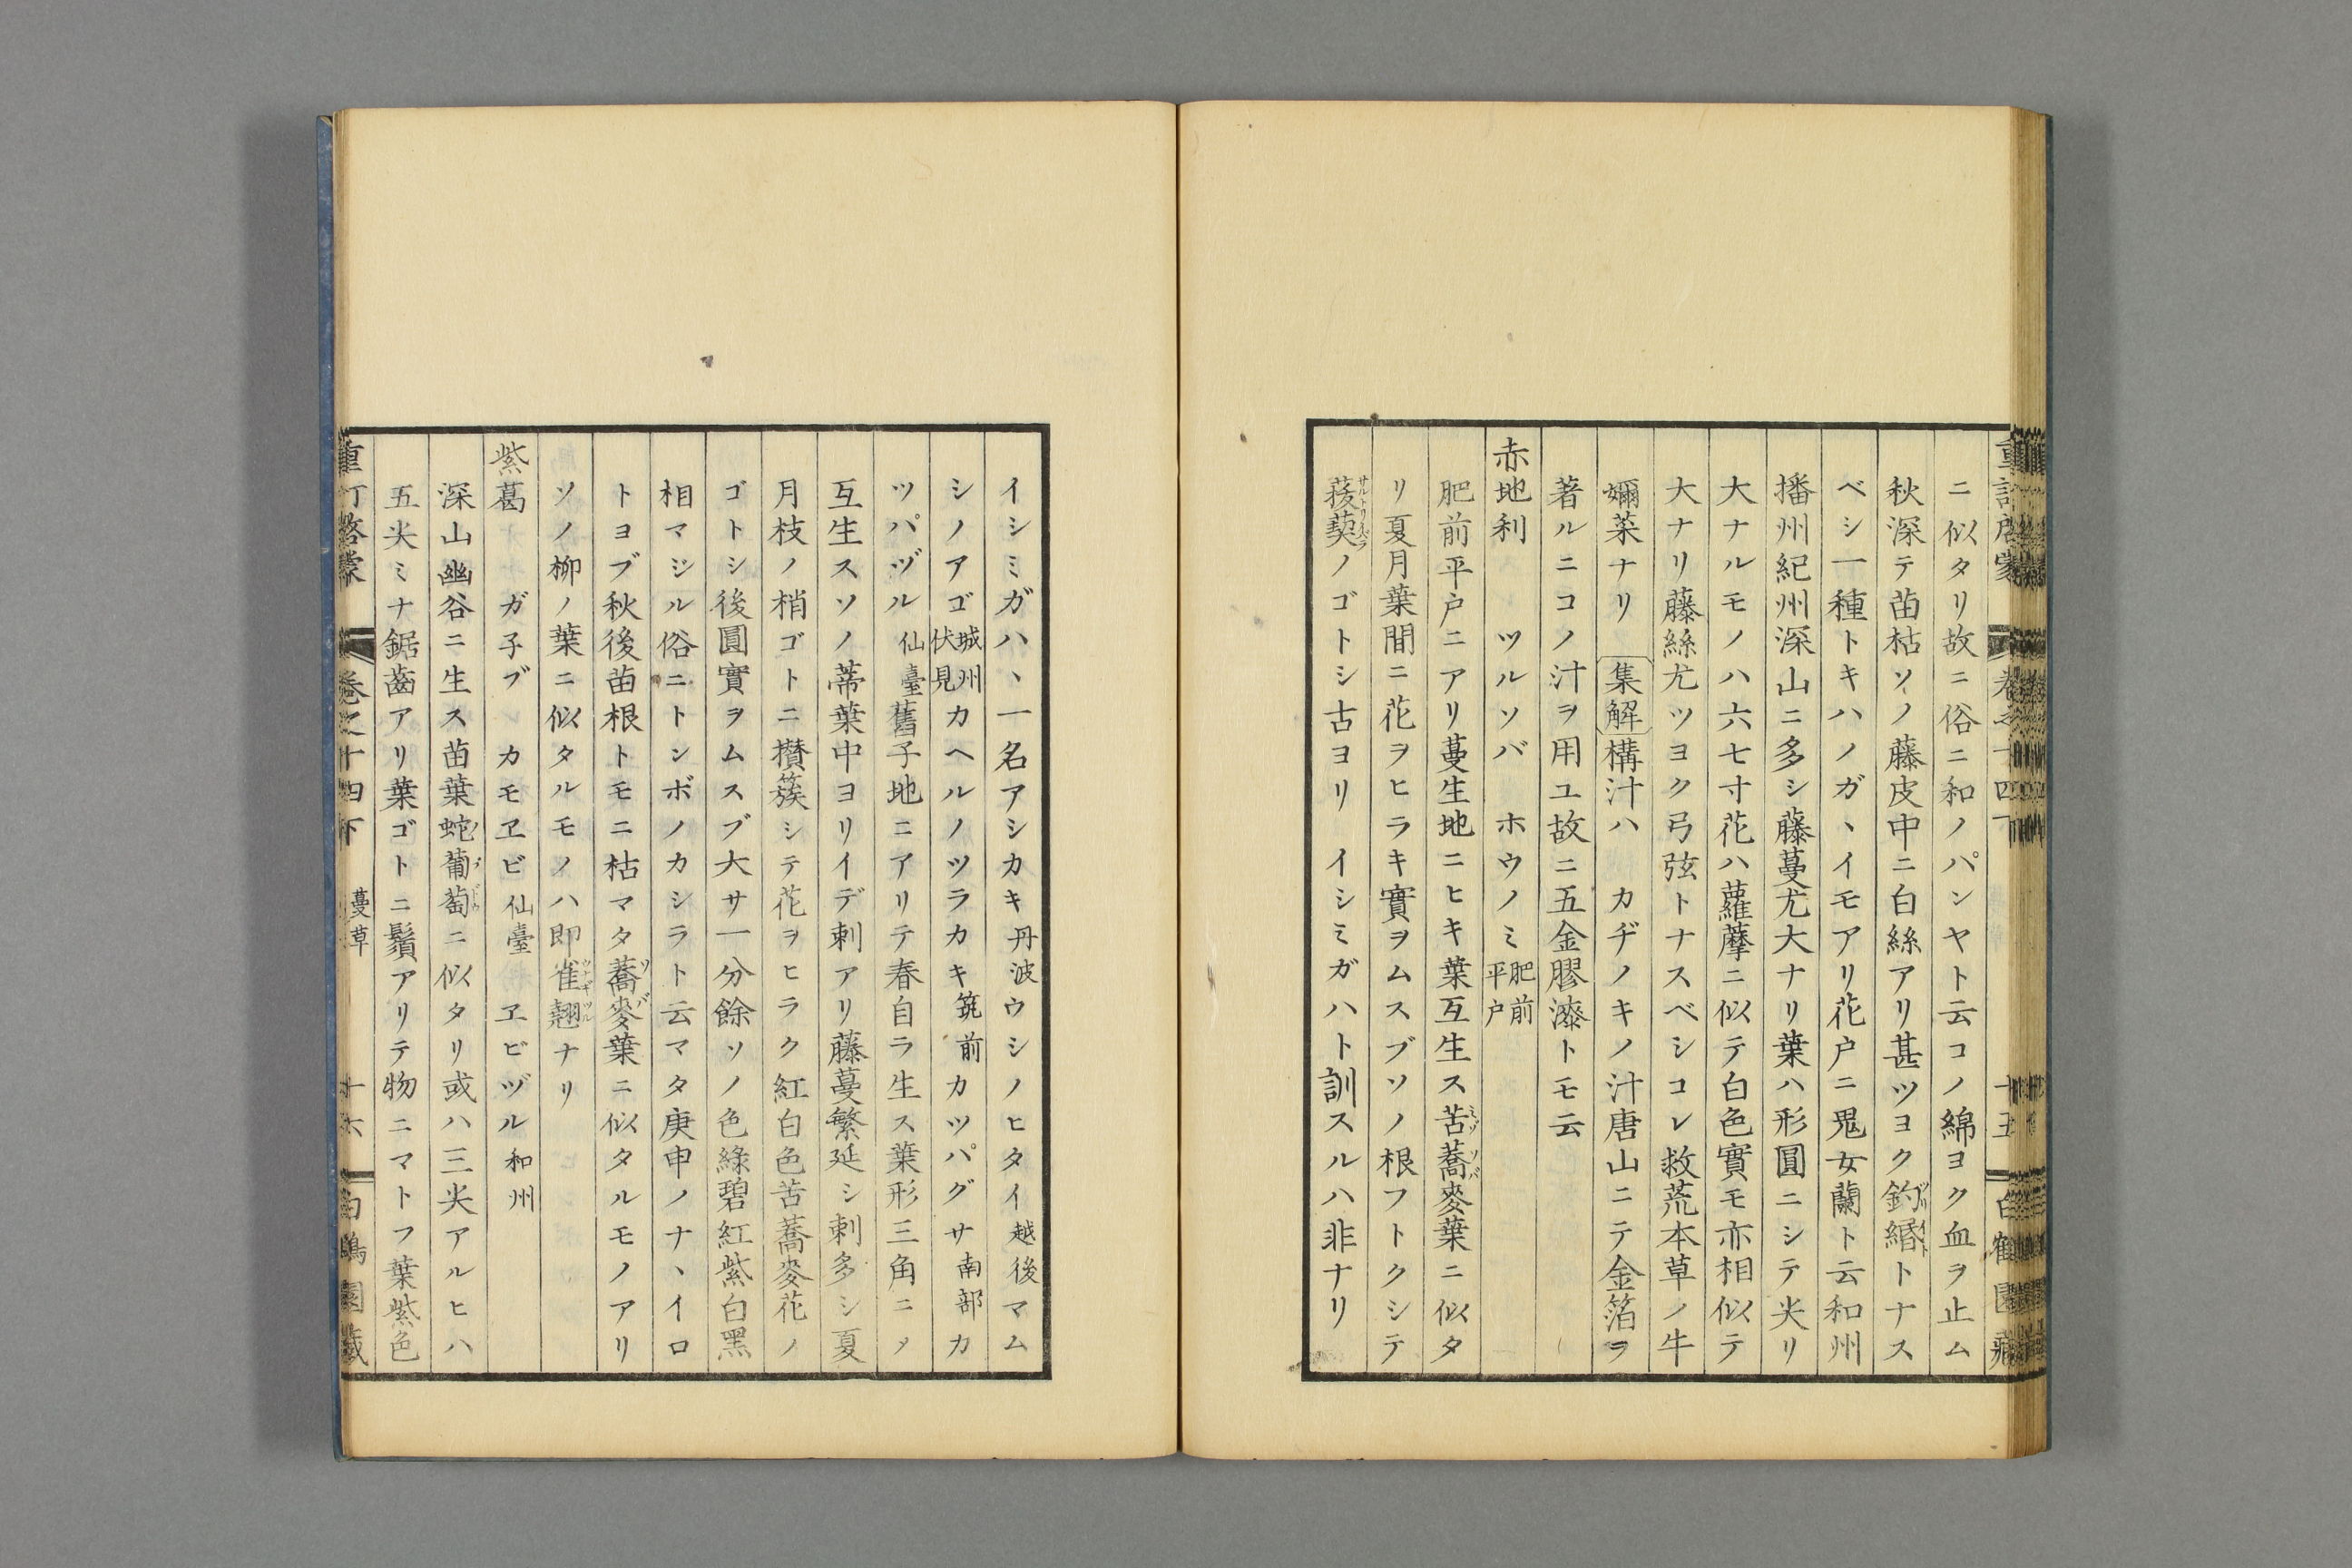 ニ似タリ故ニ俗ニ和ノパンヤト云コノ綿ヨク血ヲ止ム
秋深テ苗枯ソノ藤皮中ニ白絲アリ甚ツヨク釣緡トナス
ベシ一種トキハノガヽイモアリ花戸ニ鬼女蘭ト云和州
播州紀州深山ニ多シ藤蔓尤大ナリ葉ハ形圓ニシテ尖リ
大ナルモノハ六七寸花ハ蘿藦ニ似テ白色實モ亦相似テ
大ナリ藤絲尤ツヨク弓弦トナスベシコレ救荒本草ノ牛
嬭菜ナリ 集解構汁ハ カヂノキノ汁唐山ニテ金箔ヲ
著ルニコノ汁ヲ用ユ故ニ五金膠漆トモ云
赤地利 ツルソバ ホウノミ肥前平戸
肥前平戸ニアリ蔓生地ニヒキ葉互生ス苦蕎麥葉ニ似タ
リ夏月葉間ニ花ヲヒラキ實ヲムスブソノ根フトクシテ
菝葜ノゴトシ古ヨリ イシミガハト訓スルハ非ナリ
イシミガハヽ一名アシカキ丹波ウシノヒタイ越後マム
シノアゴ城州伏見カヘルノツラカキ筑前カツパグサ南部カ
ツパヅル仙臺舊子地ニアリテ春自ラ生ス葉形三角ニノ
互生スソノ蒂葉中ヨリイデ刺アリ藤蔓繁延シ刺多シ夏
月枝ノ梢ゴトニ攅簇シテ花ヲヒラク紅白色苦蕎麥花ノ
ゴトシ後圓實ヲムスブ大サ一分餘ソノ色綠碧紅紫白黑
相マジル俗ニトンボノカシラト云マタ庚申ノナヽイロ
トヨブ秋後苗根トモニ枯マタ蕎麥葉ニ似タルモノアリ
ソノ柳ノ葉ニ似タルモノハ即雀翹ナリ
紫葛 ガ子ブ カモヱビ仙臺 ヱビヅル和州
深山幽谷ニ生ス苗葉蛇葡萄ニ似タリ或ハ三尖アルヒハ
五尖ミナ鋸齒アリ葉ゴトニ鬚アリテ物ニマトフ葉紫色
重訂啓蒙 卷之十四下 蔓草 十六